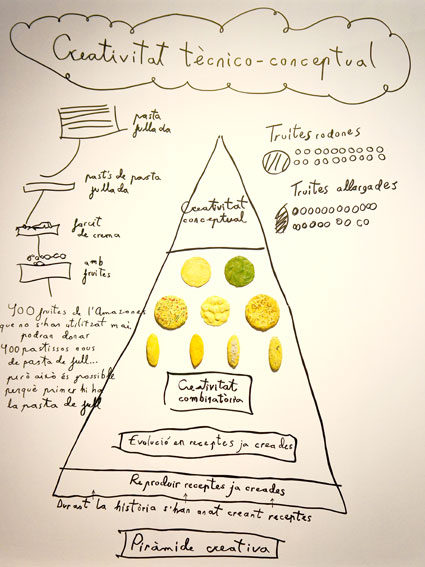 Creativitat tècnico-conceptual
pasta
fullada
pastís de pasta
fullada
farcit
de crema
amb
fruites
400 fruites de l'Amazones
que no s'han utilitzat mai
podran donar
400 pastissos nous
de pasta de full...
però això és possible
perquè primer hi ha
la pasta de full
Truites rodones
Truites allargades
Creativitat
conceptual
Creativitat
combinatòria
Evolució en receptes ja creades
Reproduir receptes ja creades
Durant la història s'han anat creant receptes
Piràmide creativa